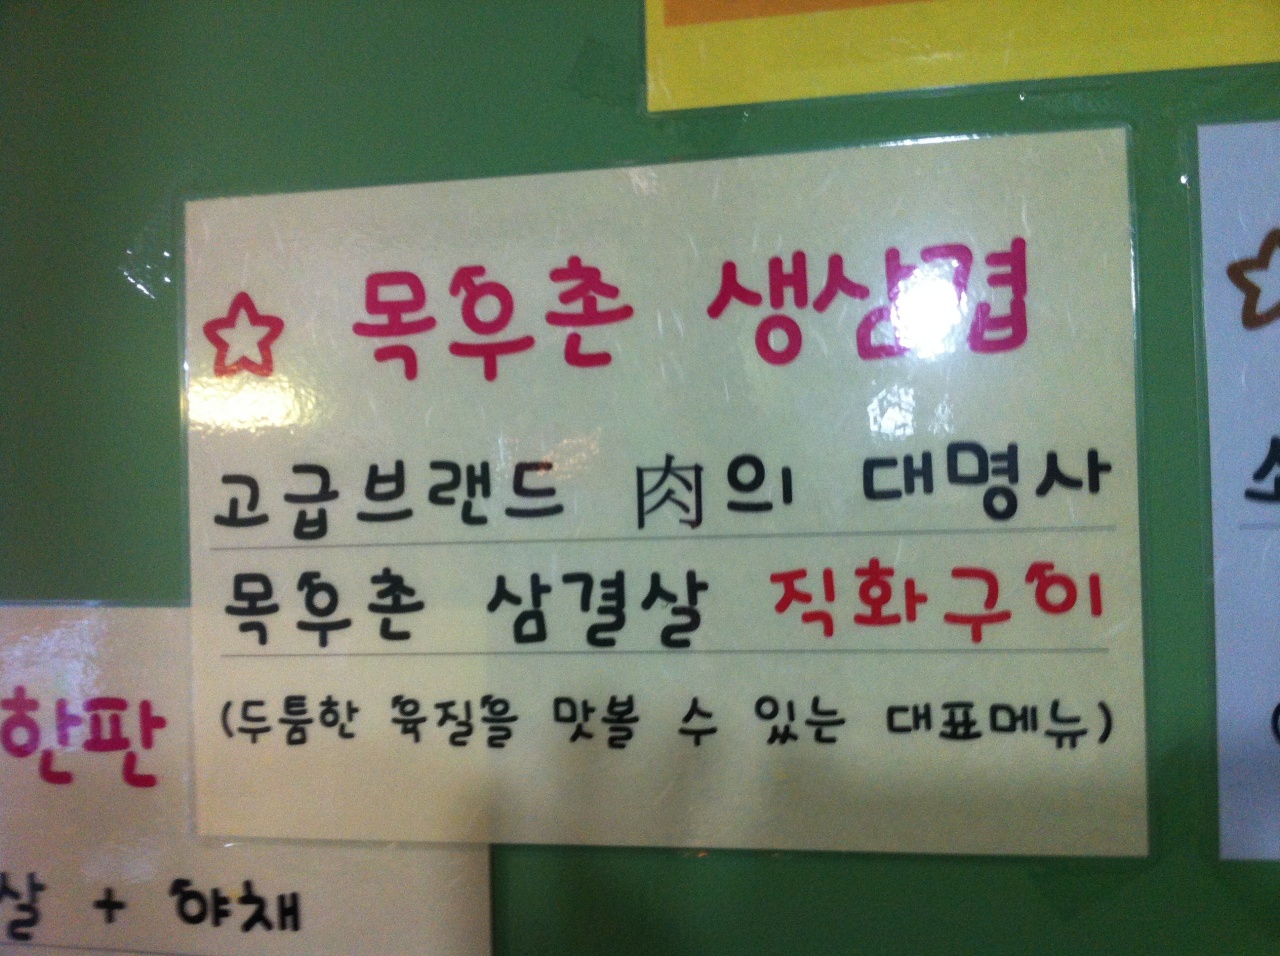 ☆ 목후촌 생삼겹
고급브랜드 肉의 대명사
목후촌 삼결살 직화구이
(두툼한 육질을 맛볼 수 있는 대표메뉴)
한판
살 + 야채